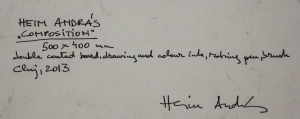 HEIM ANDRÁS
„COMPOSITION"
500 x 400 mm
double coated board, drawing and colour ink, rotring pen, brush
Cluj, 2013
Heim András